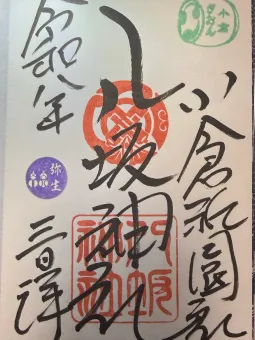 小倉祇園社
八坂神社
八坂神社
令和八年
弥生
三日拝